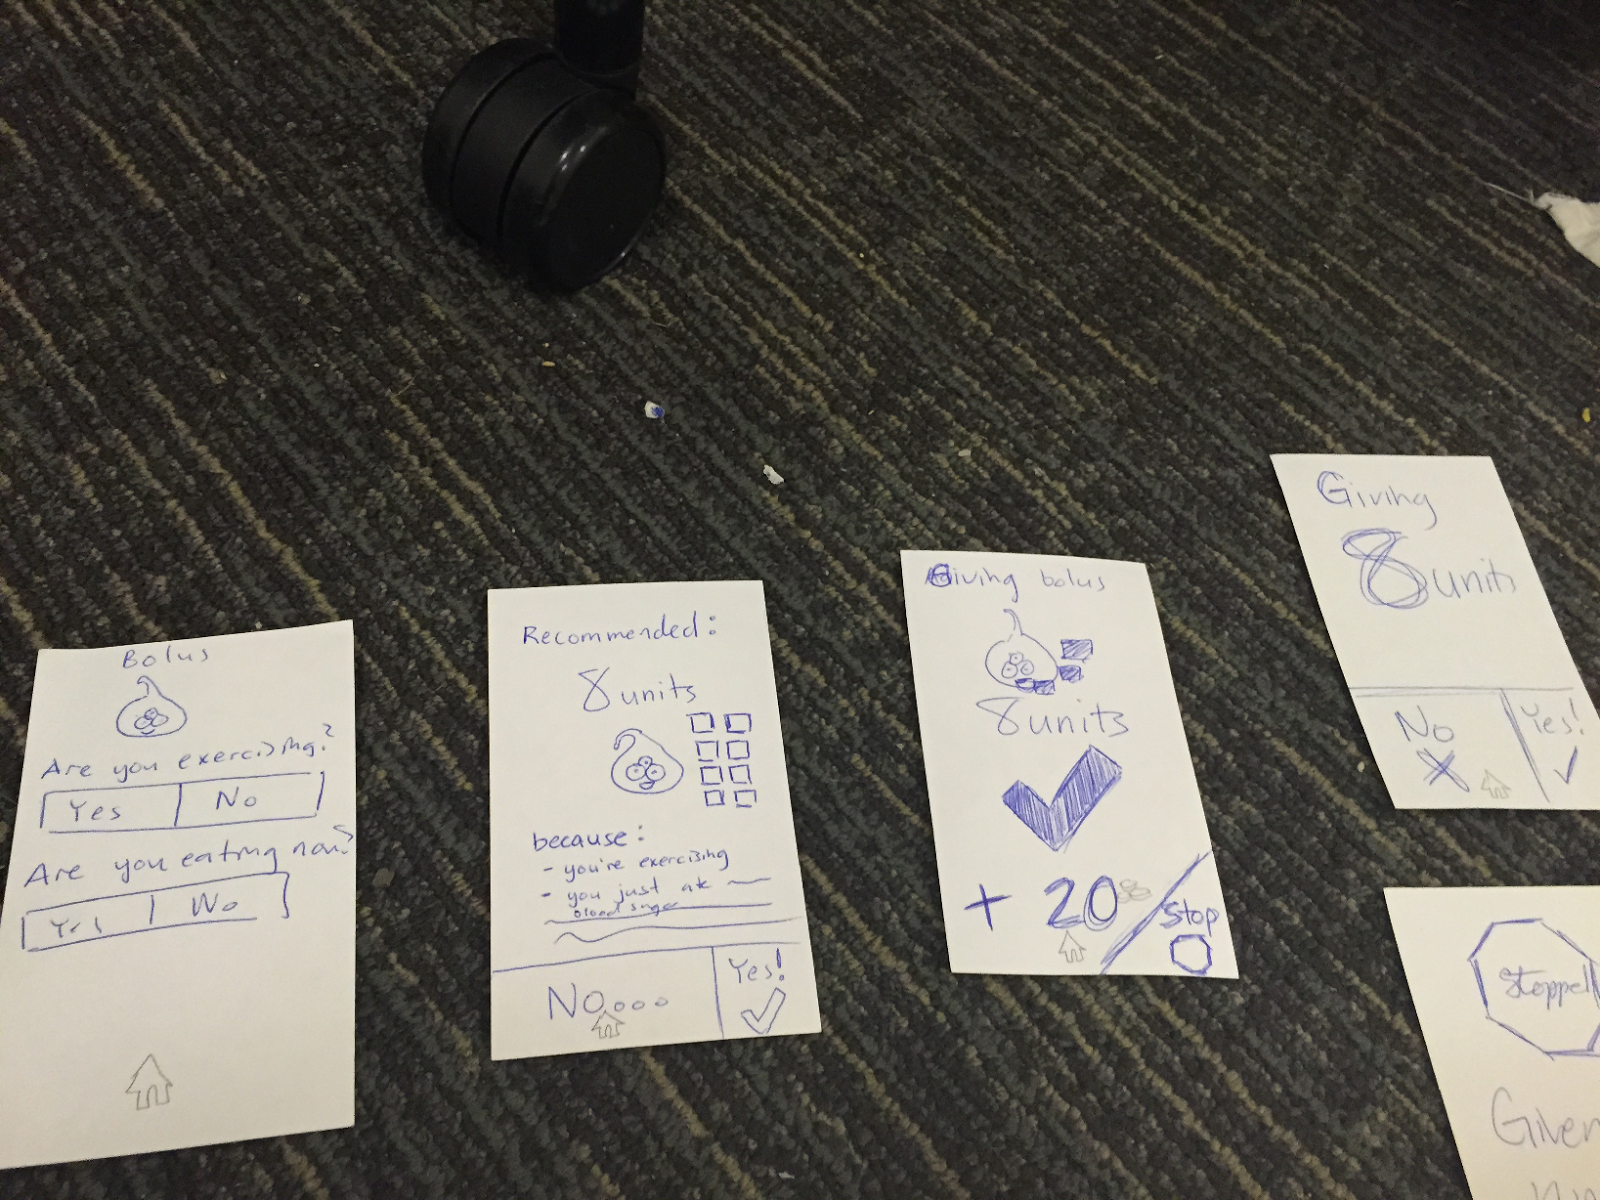 Bolus
Are you exercising?
Yes No
Are you eating now?
Yes No
Recommended:
8 units
because:
- you're exercising
- you just ate
blood sugar
No...
Yes!
Giving bolus
8 units
+ 20
Stop
Giving
8 units
No
Yes!
Stopped
Given